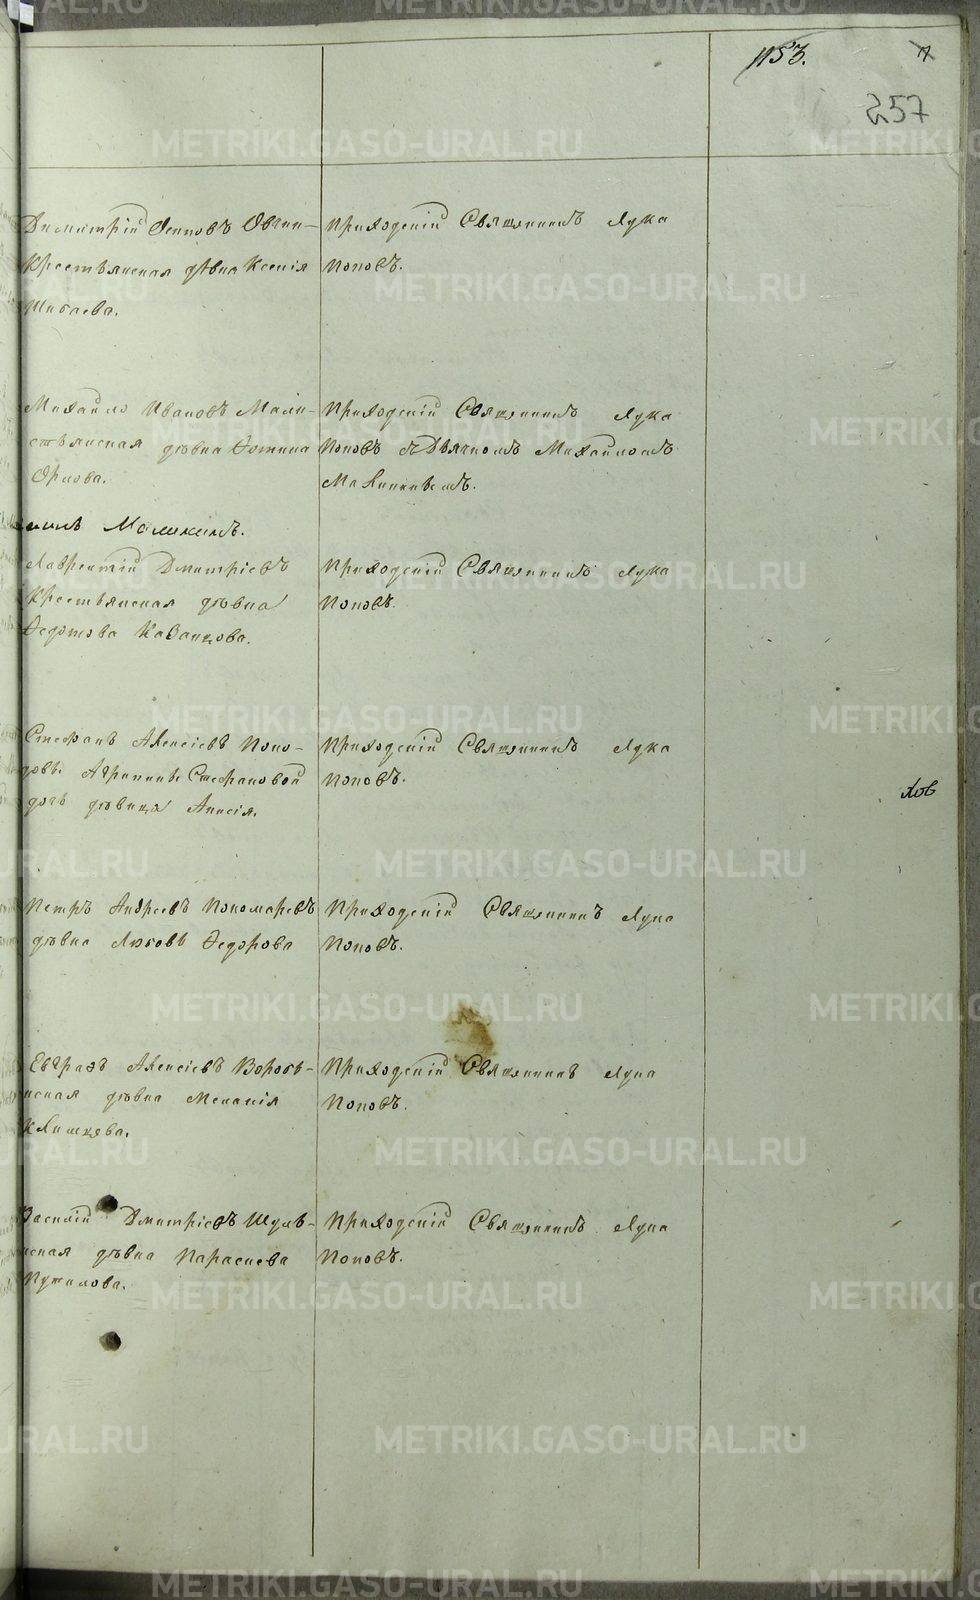 1153.
257
Димитрій Осиповъ Овчин-
Крестьянская дѣвка Ксенія
Шибаева.
Приходскій Священникъ Лука
Поповъ.
Михайло Ивановъ Мали-
стьянская дѣвка Фотина
Орлова.
Приходскій Священникъ Лука
Поповъ съ Дьячкомъ Михайломъ
Маликинымъ.
Лаврентій Дмитріевъ
Крестьянская дѣвка
Федотова Казанцова.
Приходскій Священникъ Лука
Поповъ.
Стефанъ Алексіевъ Попо-
довы Агрипины Стефановой
дочь дѣвица Анисія.
Приходскій Священникъ Лука
Поповъ.
Петръ Андреевъ Пономаревъ
дѣвка Любовь Федорова
Приходскій Священникъ Лука
Поповъ.
Евграфъ Алексіевъ Воробь-
нская дѣвка Меланія
Клишцева.
Приходскій Священникъ Лука
Поповъ.
Василій Дмитріевъ Шуль-
нская дѣвка Параскева
Путилова.
Приходскій Священникъ Лука
Поповъ.
METRIKI.GASO-URAL.RU